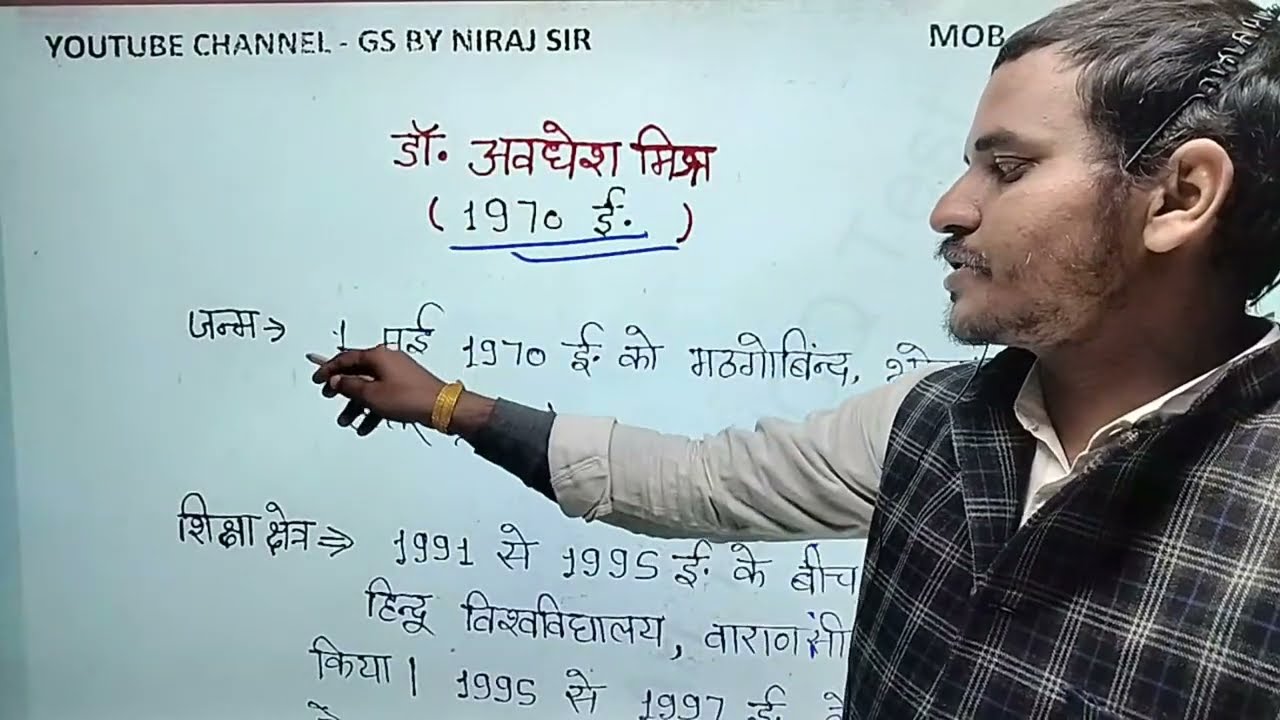 YOUTUBE CHANNEL - GS BY NIRAJ SIR MOB
डॉ. अवधेश मिश्र
( 1970 ई. )
जन्म → 1 मई 1970 ई. को मठगोबिंन्द,
शिक्षा क्षेत्र ⇒ 1991 से 1995 ई. के बीच
हिन्दू विश्वविद्यालय, वाराणसी
किया। 1995 से 1997 ई.